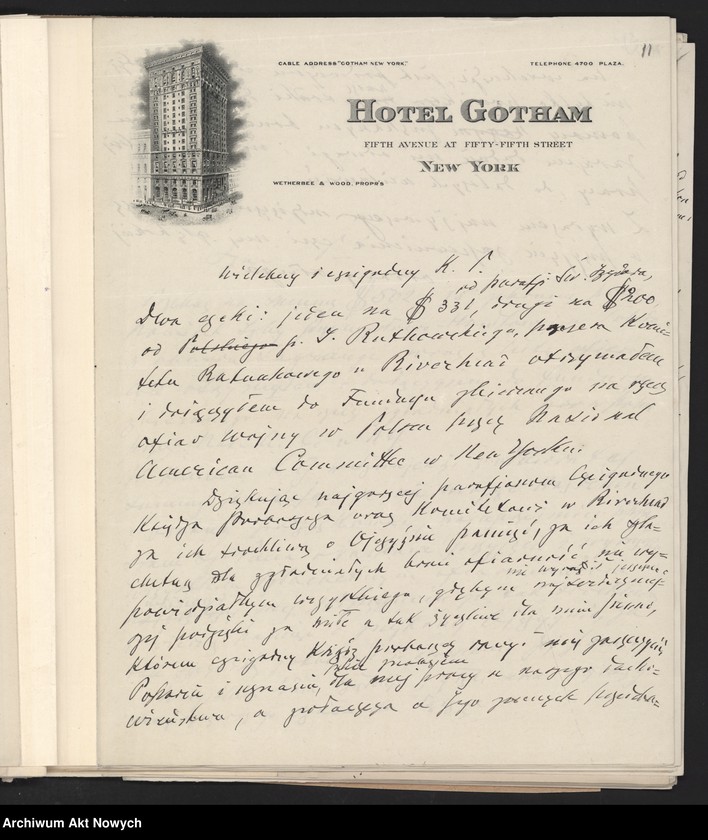 11
CABLE ADDRESS "GOTHAM NEW YORK."
TELEPHONE 4700 PLAZA.
HOTEL GOTHAM
FIFTH AVENUE AT FIFTY-FIFTH STREET
NEW YORK
WETHERBEE & WOOD, PROPR'S
Wielebny i czcigodny K. P.
od parafji Św. Izydora,
Dwa czeki: jeden na $ 331, drugi na $200
od Polskiego p. J. Rutkowskiego, prezesa Komi-
tetu Ratunkowego w Riverhead otrzymałem
i dołączyłem do Funduszu zbieranego na rzecz
ofiar wojny w Polsce przez National
American Committee w New Yorku.
Dziękując najgoręcej parafjanom Czcigodnego
Księdza Proboszcza oraz Komitetowi w Riverhead
za ich troskliwą o Ojczyźnie pamięć, za ich szla-
chetną dla zgłodniałych braci ofiarność, nie wy-
powiedziałbym wszystkiego, gdybym nie wyraził jeszcze najserdeczniej-
szej podzięki za miłe a tak życzliwe dla mnie słowa,
któremi czcigodny Ksiądz proboszcz raczył mój
Poparcia i uznania, dla mej pracy u naszego
a o Jego